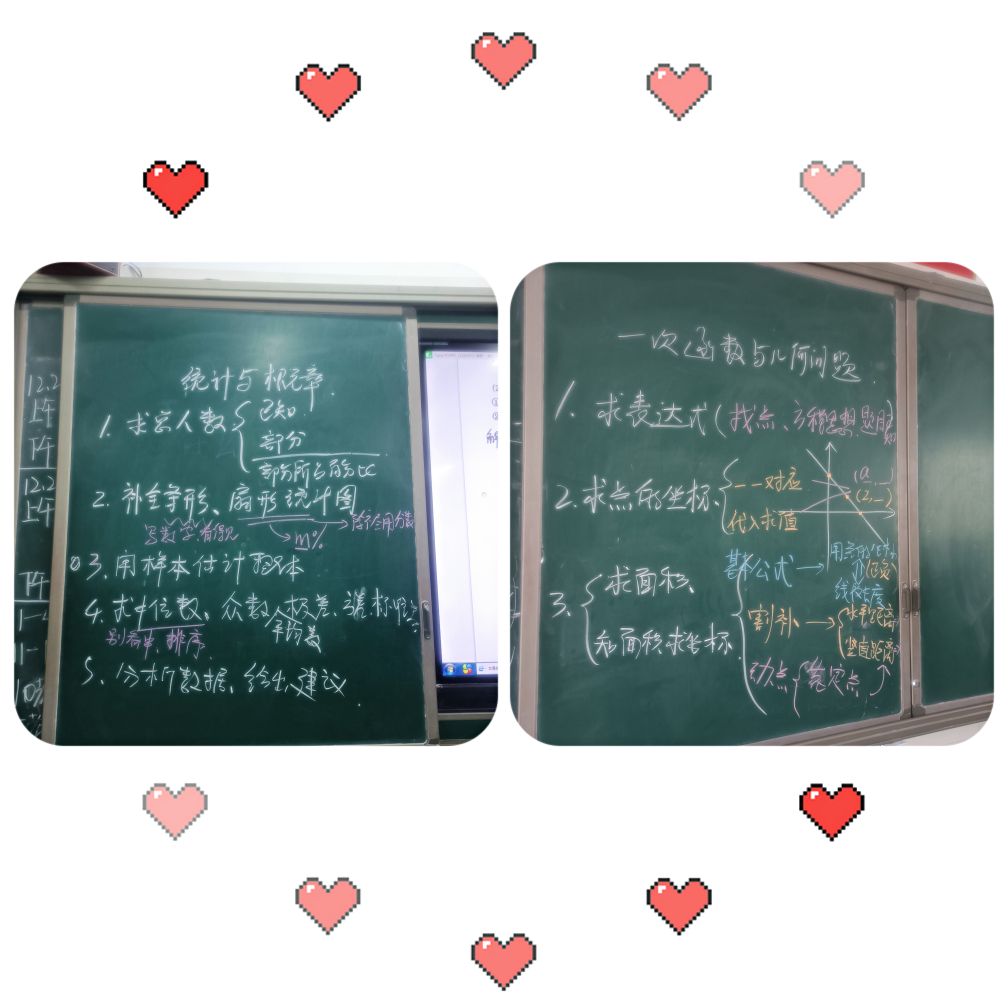 统计与概率
1. 求总人数
已知
部分
部分所占百分比
2. 补全条形、扇形统计图
m%
3. 用样本估计总体
4. 求中位数、众数、极差、
平均差
排序
5、分析数据、给出建议
12.2
上午
下午
12.2
上午
下午
一次函数与几何问题
1. 求表达式(找点、方程思想、题目
2. 求点的坐标、
一一对应
代入求值
(a, )
(2, )
3.
求面积、
和面积求坐标
公式→
线段长度
割补→
水平距离
竖直距离
动点
定点